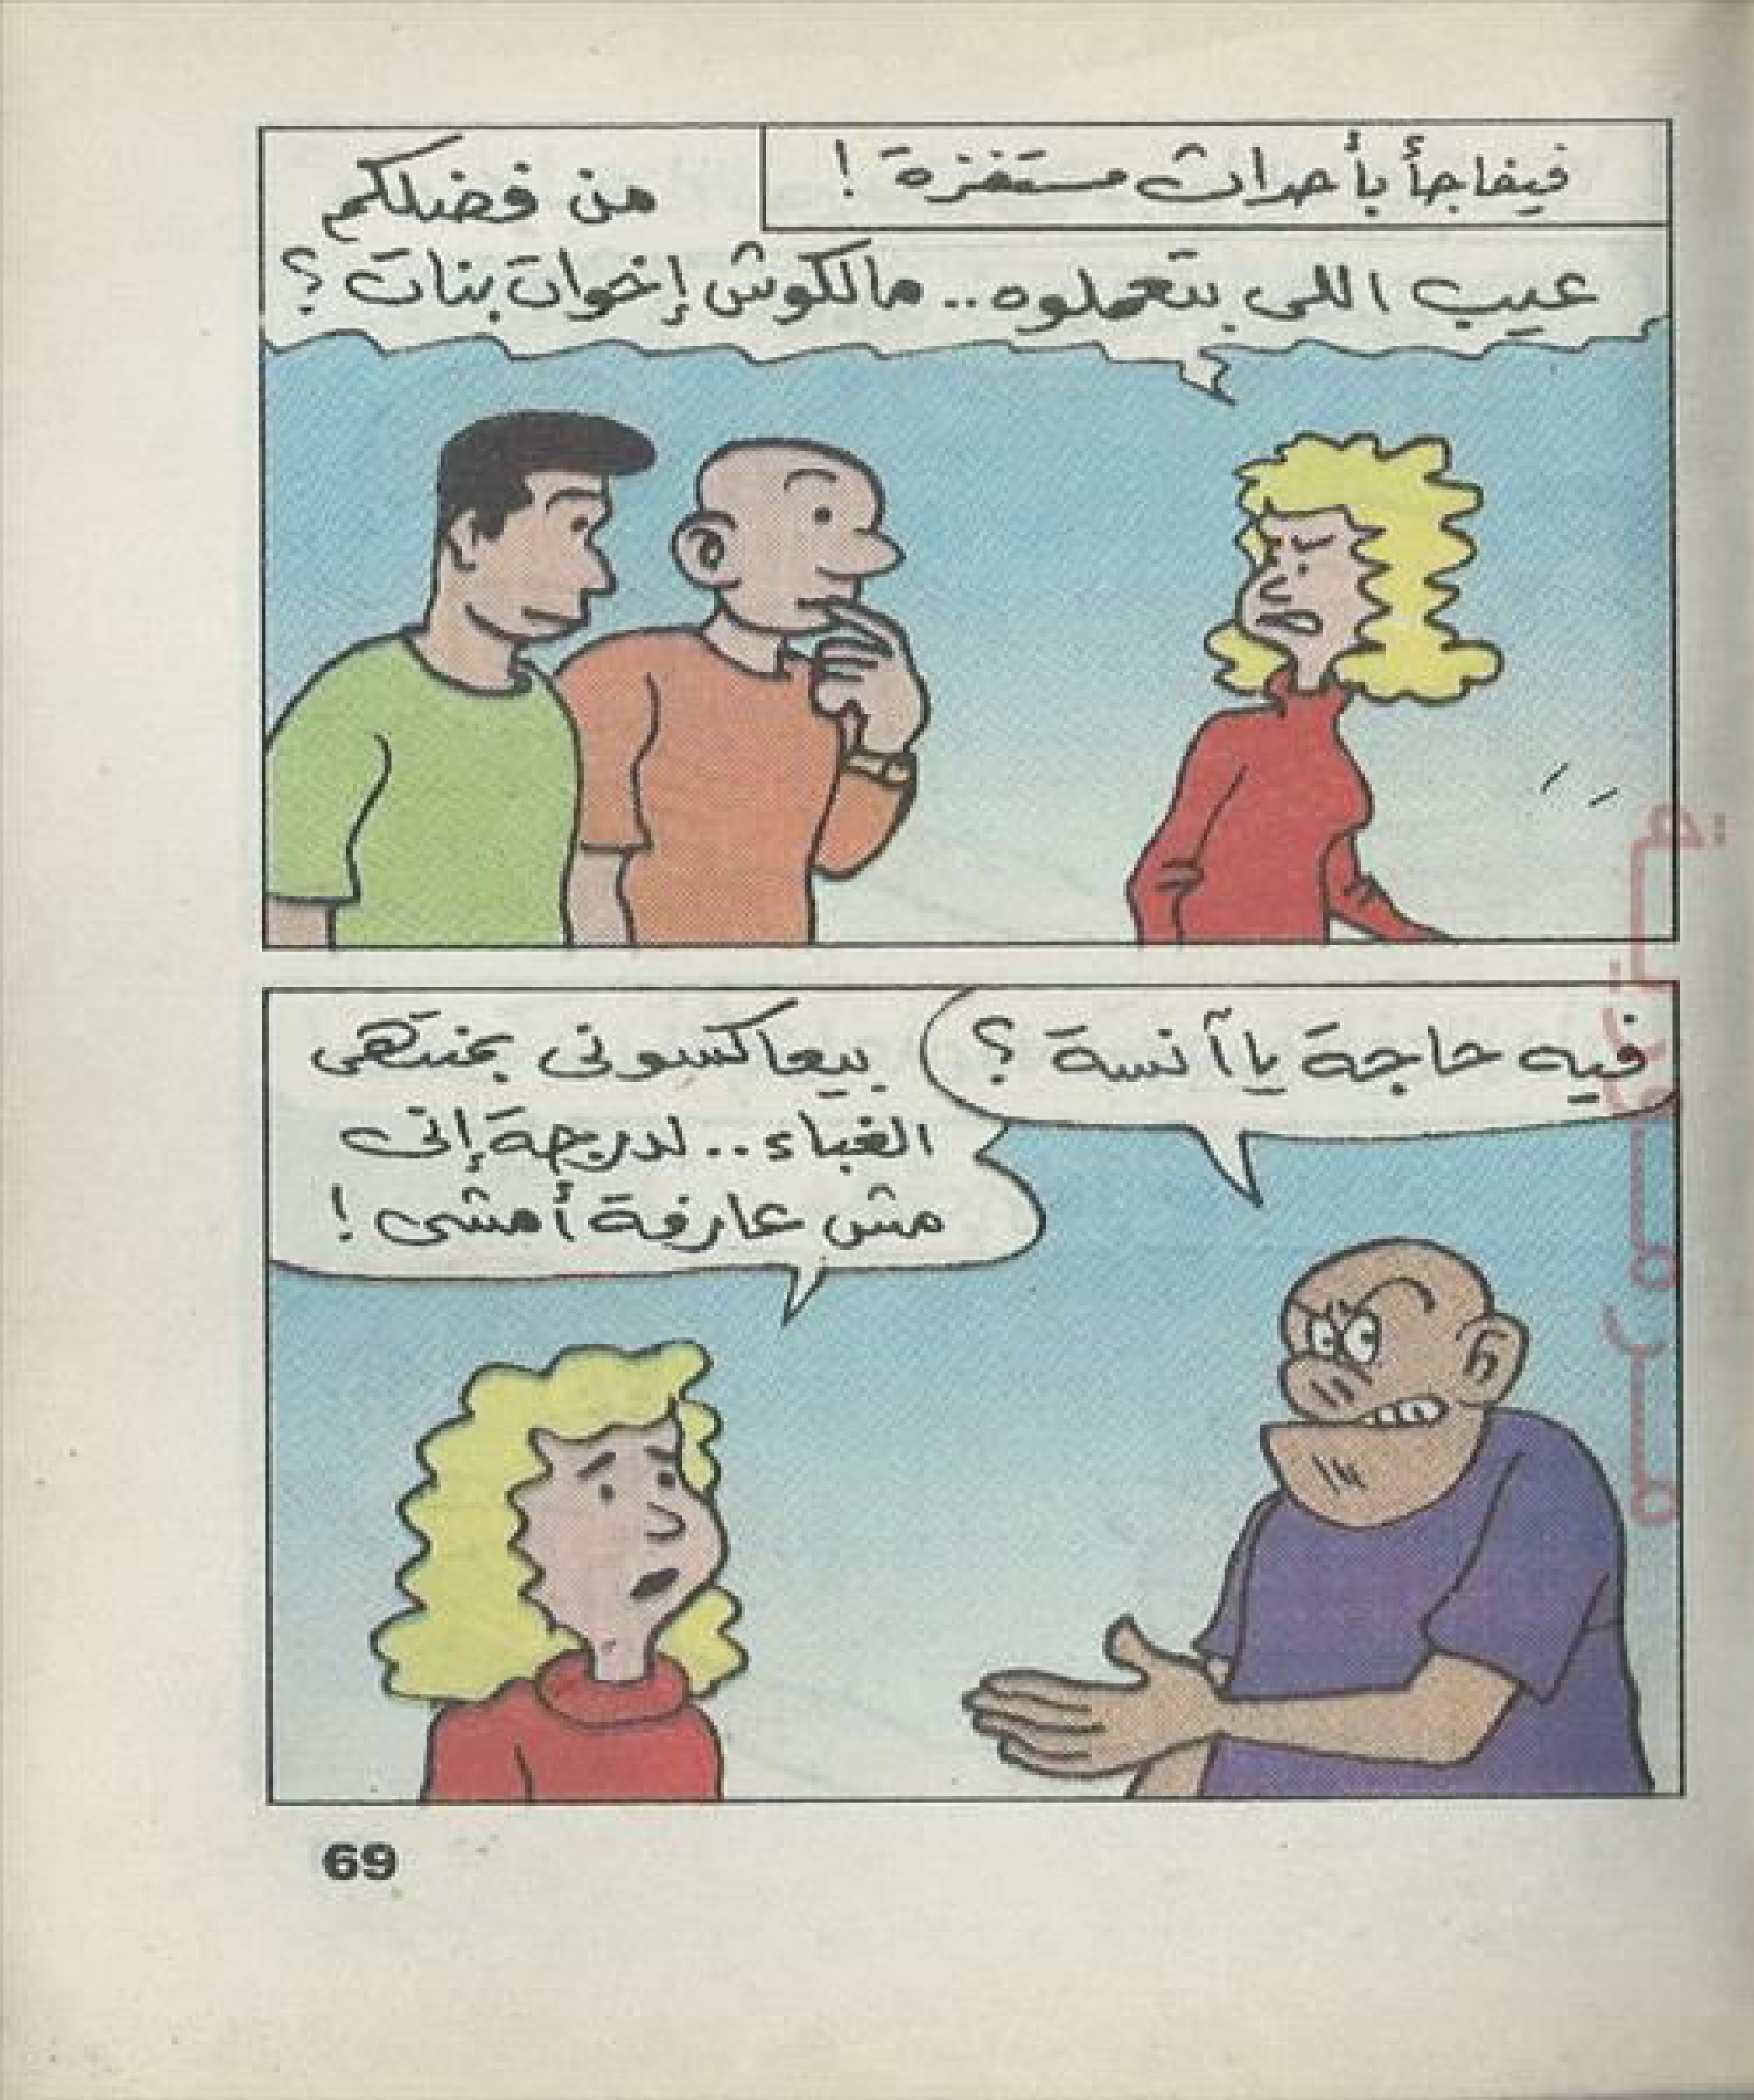 فيفاجأ بأحداث مستفزة !
من فضلكم
عيب اللى بتعملوه.. مالكوش إخوات بنات ؟
فيه حاجة يا آنسة ؟
بيعاكسونى بمنتهى
الغباء.. لدرجة إنى
مش عارفة أمشى !
69